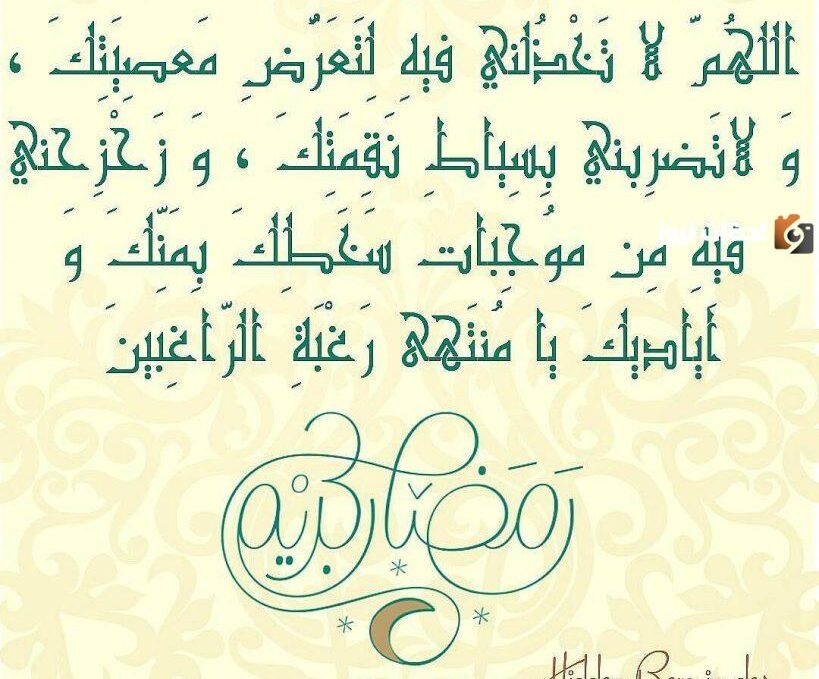 اَللّهُمَّ لا تَخْذُلني فيهِ لَتَعَرُّضِ مَعصِيَتِكَ ،
وَ لاتَضرِبني بِسِياطِ نَقِمَتِكَ ، وَ زَحْزِحني
فيهِ مِن موُجِبات سَخَطِكَ بِمَنِّكَ وَ
أَياديكَ يا مُنتَهى رَغْبَةِ الرّاغِبينَ
رمضان كريم
Hidden Reminder